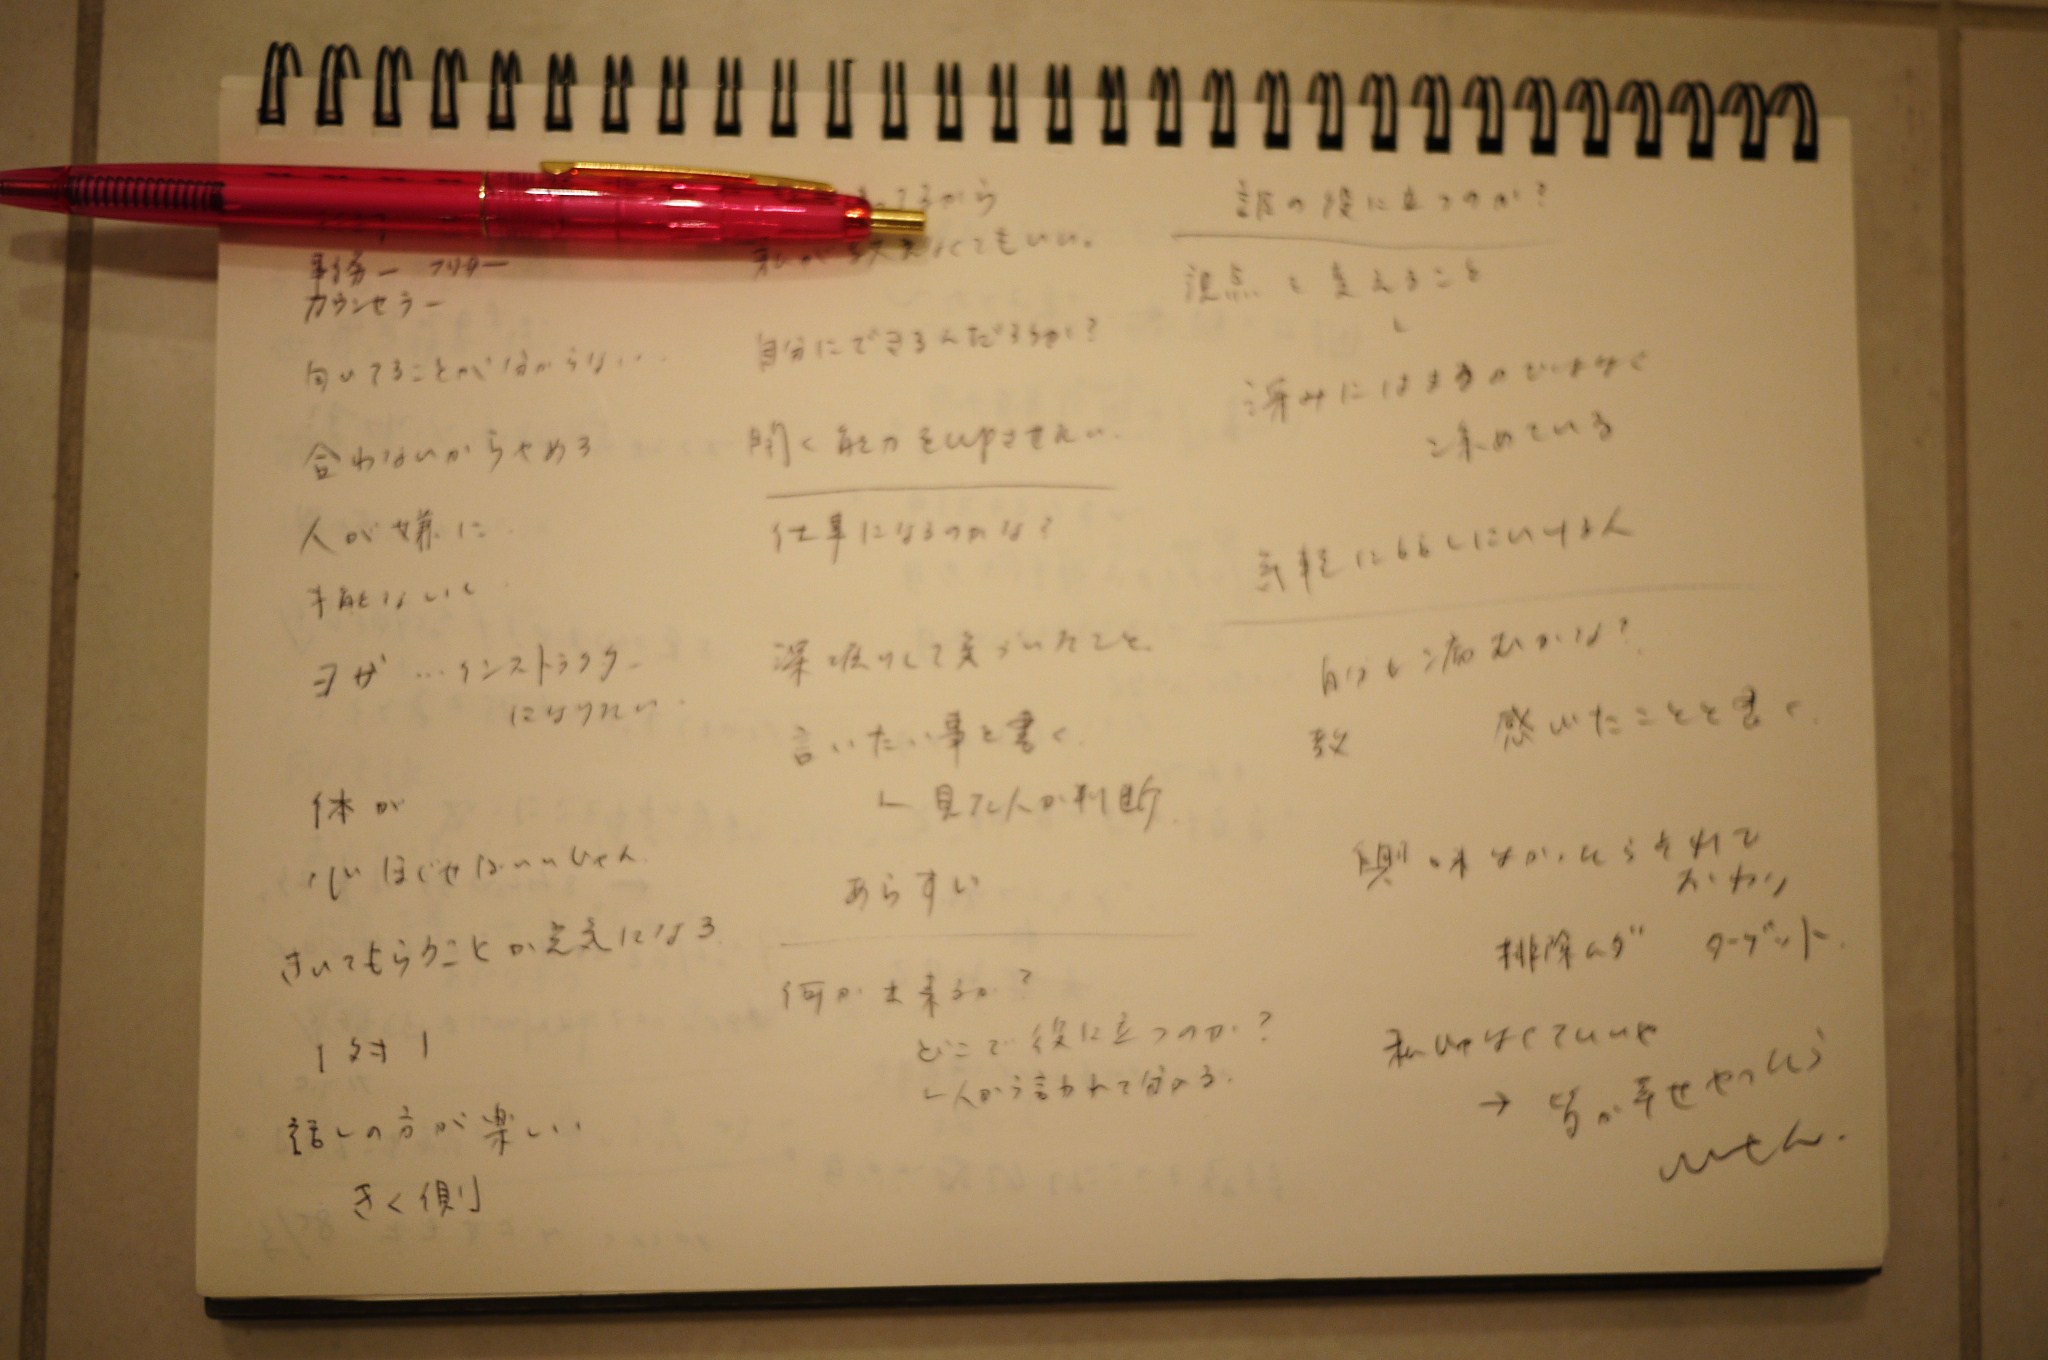 事務ー フリター
カウンセラー
向いてることが分からない.
合わないからやめる
人が嫌に.
才能ないし
ヨガ …インストラクター
になりたい.
体が
心ほどじゃないじゃん
きいてもらうことが元気になる
1対1
話しの方が楽しい
きく側
てるから
私が教えなくてもいい。
自分にできるんだろうか?
聞く能力をupさせたい.
仕事になるのかな?
深堀りして気づいたこと.
言いたい事を書く.
見た人が判断.
あらすい
何が出来るか?
どこで役に立つのか?
人から言われて分かる.
誰の役に立つのか?
視点を変えることを
し
深みにはまるのではなく
求めている
気軽に
人
自分も病むかな?
感じたことを書く.
興味
排除 ターゲット.
私じゃなくていいや
→ 皆が幸せ